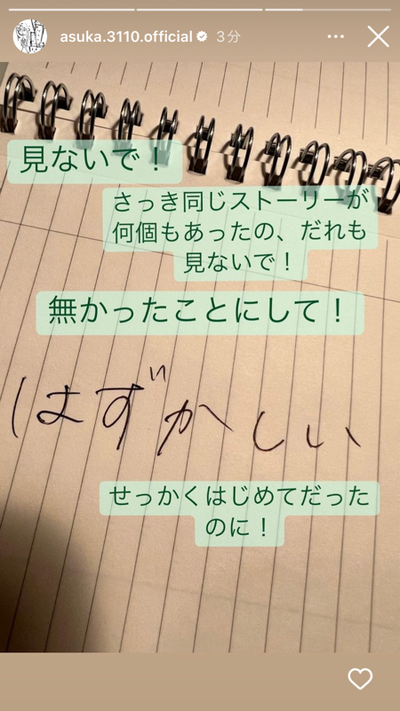 asuka.3110.official 3分
見ないで！
さっき同じストーリーが
何個もあったの、だれも
見ないで！
無かったことにして！
はずかしい
せっかくはじめてだった
のに！